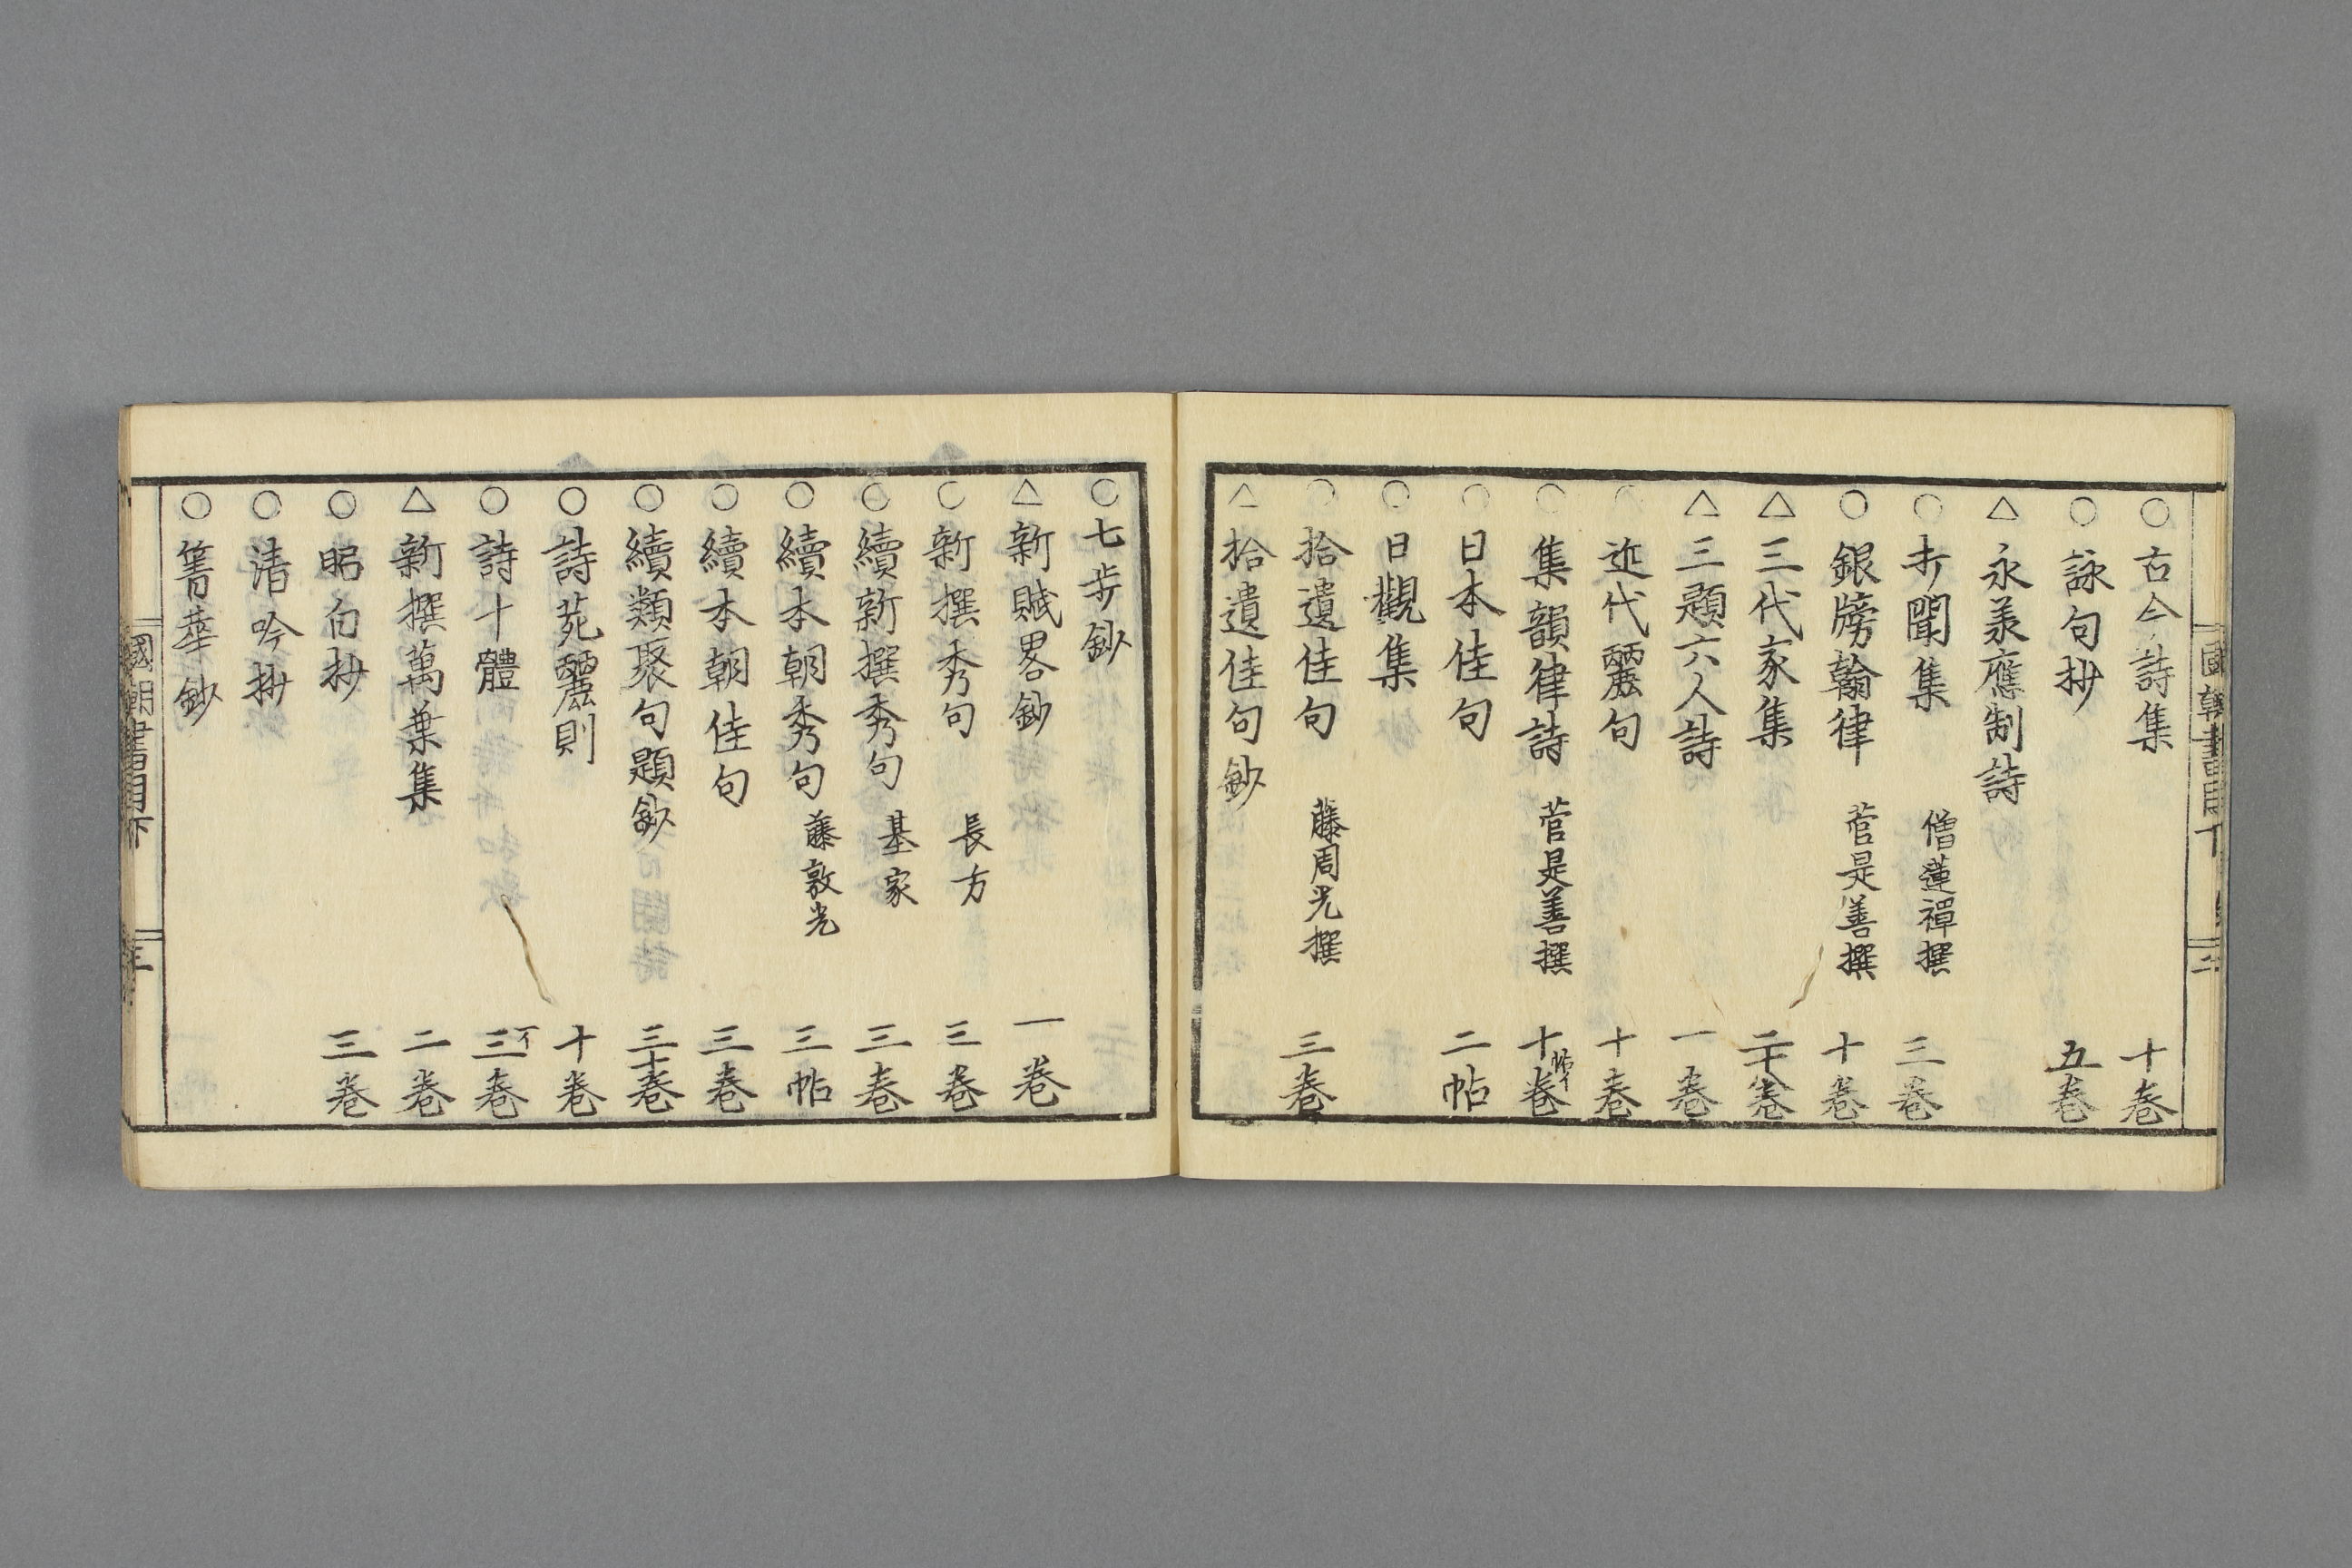 ○古今詩集 十卷
○詠句抄 五卷
△永羕應制詩
○才聞集 僧蓮禪撰 三卷
○銀牓翰律 菅是善撰 十卷
△三代家集 二十八卷
△三題六人詩 一卷
○近代麗句 十卷
○集韻律詩 菅是善撰 十卷
○日本佳句 二帖
○日觀集
○拾遺佳句 藤周光撰 三卷
△拾遺佳句鈔
○七步鈔
△新賦畧鈔 一卷
○新撰秀句 長方 三卷
○續新撰秀句 基家 三卷
○續本朝秀句 藤敦光 三帖
○續本朝佳句 三卷
○續類聚句題鈔 三十卷
○詩苑麗則 十卷
○詩十體 三卷
△新撰萬葉集 二卷
○昭句抄 三卷
○清吟抄
○菁華鈔
國朝書目下
三